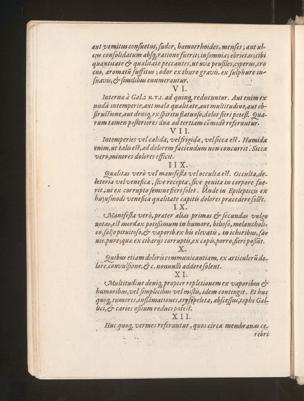 aut vomitus consuetus, sudor, haemorrhoides, menses, aut ul-
cus consolidatum absq; ratione fuerit; insomnia; ebrietas; cibi
quantitate & qualitate peccantes, ut uvae pensiles, cyperus, cro
cus, aromatū suffitus, odor ex thure gravis, ex sulphure in-
suavis, & similibus enumerantur.
VI.
Interna à Gal. 2. κ.τ.τ. ad quinq; reducuntur. Aut enim ex
nuda intemperie, aut mala qualitate, aut multitudine, aut ob-
structione, aut deniq; ex spiritu flatuoso, dolor fieri potest. Qua-
rum tamen posteriores duae ad tertiam cōmodè referuntur.
VII.
Intemperies vel calida, vel frigida, vel sicca est. Humida
enim, ut talis est, ad dolorem faciendum non concurrit. Sicca
verò, minores dolores efficit.
IIX.
Qualitas verò vel manifesta vel occulta est. Occulta, de-
leteria vel venefica, sive recepta, sive genita in corpore fue-
rit, ut ex corrupto semine fieri solet. Unde in Epilepsia ex
hujusmodi venefica qualitate capitis dolores procedere solēt.
IX.
Manifesta verò, praeter alias primas & secundas vulgo
notas, est mordax potissimum in humore, bilioso, melancholi-
co, salso pituitoso, & vaporib. ex his elevatis, in ichoribus, sa-
nie, pure, quae ex cibaris corruptis, ex capis, porro, fieri possūt.
X.
Quibus etiam doloris communicationem, ex articulorū do-
lore, convulsione, & c. nonnulli addere solent.
XI.
Multitudine deniq; propter repletionem ex vaporibus &
humoribus, vel simplicibus vel mistis, idem contingit. Et huc
quoq; tumores, inflāmationes, erysipelata, abscessus, tophi Gal-
lici, & caries ossium reduci potest.
XII.
Huc quoq; vermes referuntur, quos circa membranas ce-
rebri